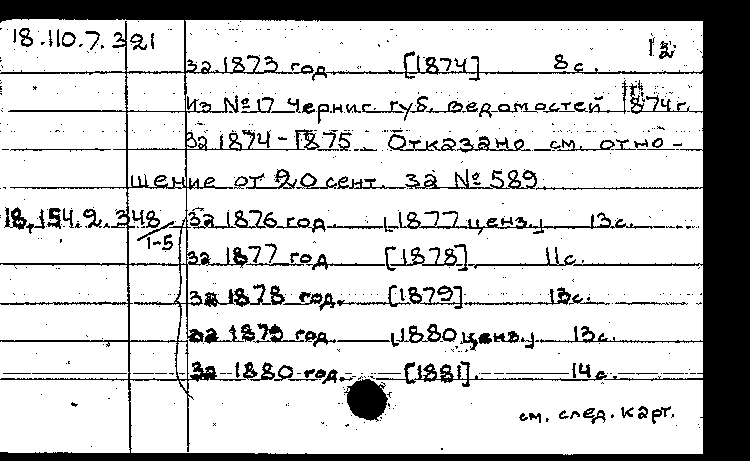 18.110.7.321
за 1873 год [1874] 8 с.
Из № 17 Черниг. губ. ведомостей 1874 г.
за 1874-1875 Отказано см. отно-
шение от 20 сент. за № 589
18.154.2.348/1-5 за 1876 год [1877 ценз.] 13 с.
за 1877 год [1878] 11 с.
за 1878 год. [1879] 13 с.
за 1879 год [1880 ценз.] 13 с.
за 1880 год. [1881]. 14 с.
см. след. карт.